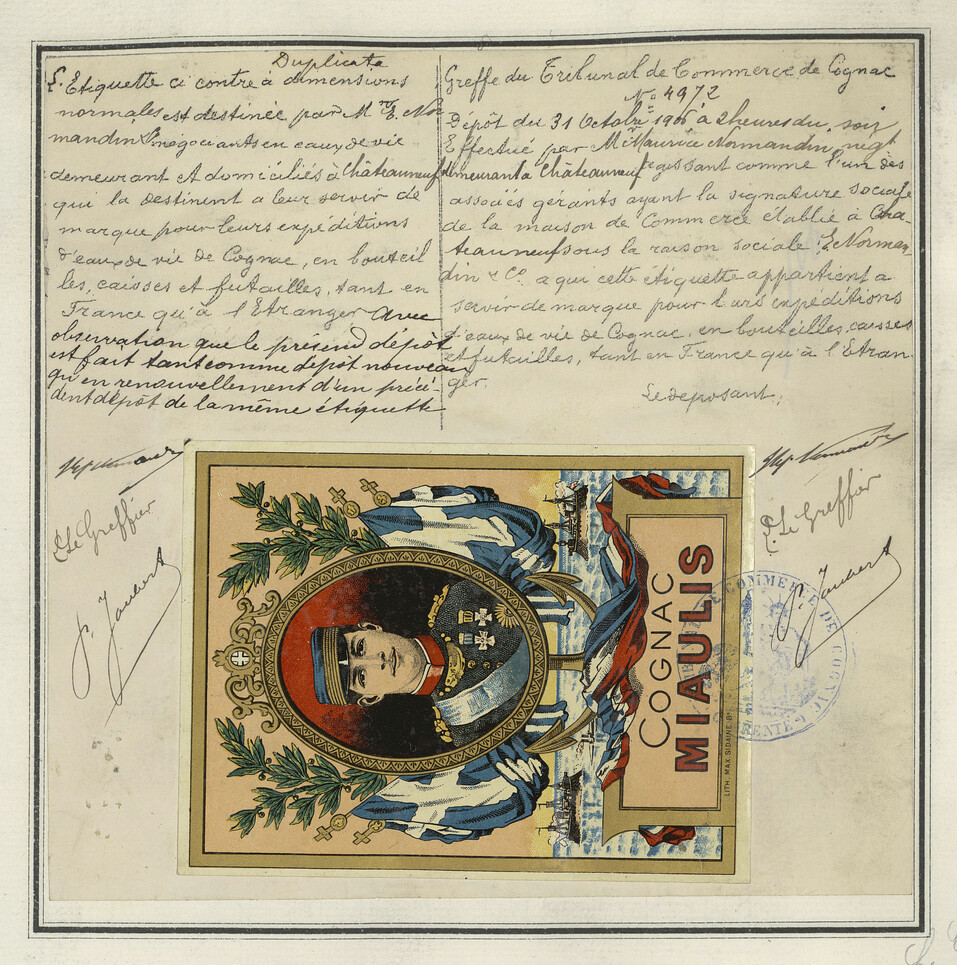 Duplicata
L'Etiquette ci contre à dimensions
normales est destinée par M rs E. Nor
mandin & Co négociants en eaux de vie
demeurant et domiciliés à Châteauneuf
qui la destinent a leur servir de
marque pour leurs expéditions
d'eaux de vie de Cognac, en bouteil
les, caisses et futailles, tant en
France qu'à l'Etranger Avec
observation que le présend dépôt
est fait tant comme dépôt nouveau
qu'en renouvellement d'un précé-
dent dépôt de la même étiquette
P. Le Greffier
P. Joubert
Greffe du Tribunal de Commerce de Cognac
No 4972
Dépôt du 31 Octobre 1906 à 2 heures du soir
Effectué par Mr Maurice Normandin negt
demeurant a Châteauneuf agissant comme l'un des
associés gérants ayant la signature sociale
de la maison de Commerce établie à Cha
teauneuf sous la raison sociale E. Norman
din & Co. a qui cette étiquette appartient a
servir de marque pour leurs expéditions
d'eaux de vie de Cognac, en bouteilles, caisses
et futailles, tant en France qu'à l'Etran
ger.
Le deposant,
P. Le Greffier
P. Joubert
COGNAC
MIAULIS
LITH. MAX. SIDAINE BX
COMMERCE DE COGNAC